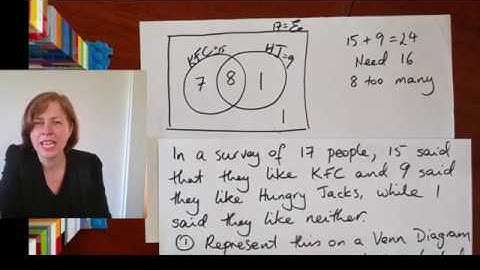 17 = ε
KFC=15
HJ=9
7 8 1
1
15 + 9 = 24
Need 16
8 too many
In a survey of 17 people, 15 said
that they like KFC and 9 said
they like Hungry Jacks, while 1
said they like neither.
① Represent this on a Venn Diagram